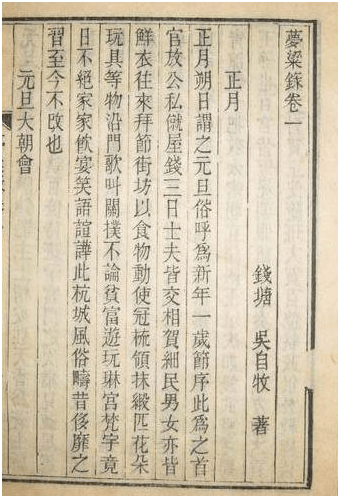 夢粱錄卷一
錢塘 吳自牧 著
正月
正月朔日謂之元旦俗呼爲新年一歲節序此爲之首
官放公私僦屋錢三日士夫皆交相賀細民男女亦皆
鮮衣往來拜節街坊以食物動使冠梳領抹緞匹花朵
玩具等物沿門歌叫關撲不論貧富遊玩琳宮梵宇竟
日不絕家家飲宴笑語諠譁此杭城風俗疇昔侈靡之
習至今不改也
元旦大朝會